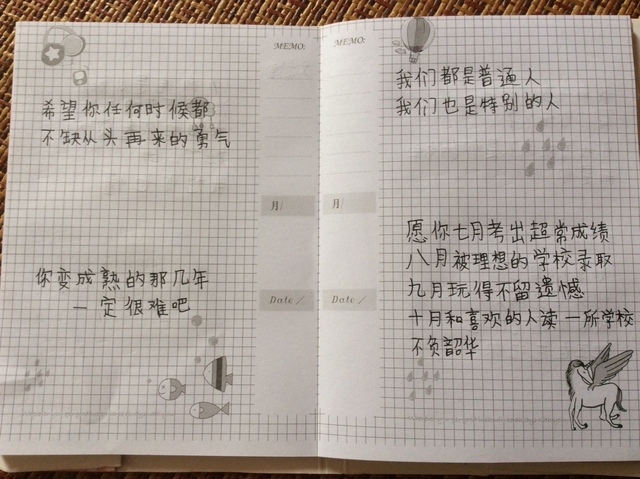 MEMO:
希望你任何时候都
不缺从头再来的勇气
月/
你变成熟的那几年
一定很难吧
Date /
MEMO:
我们都是普通人
我们也是特别的人
月/
愿你七月考出超常成绩
八月被理想的学校录取
九月玩得不留遗憾
十月和喜欢的人读一所学校
不负韶华
Date /